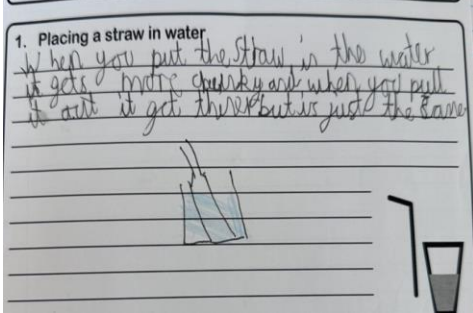 1. Placing a straw in water
When you put the straw in the water
it gets more chunky and when you pull
it out it get thiner but is just the same